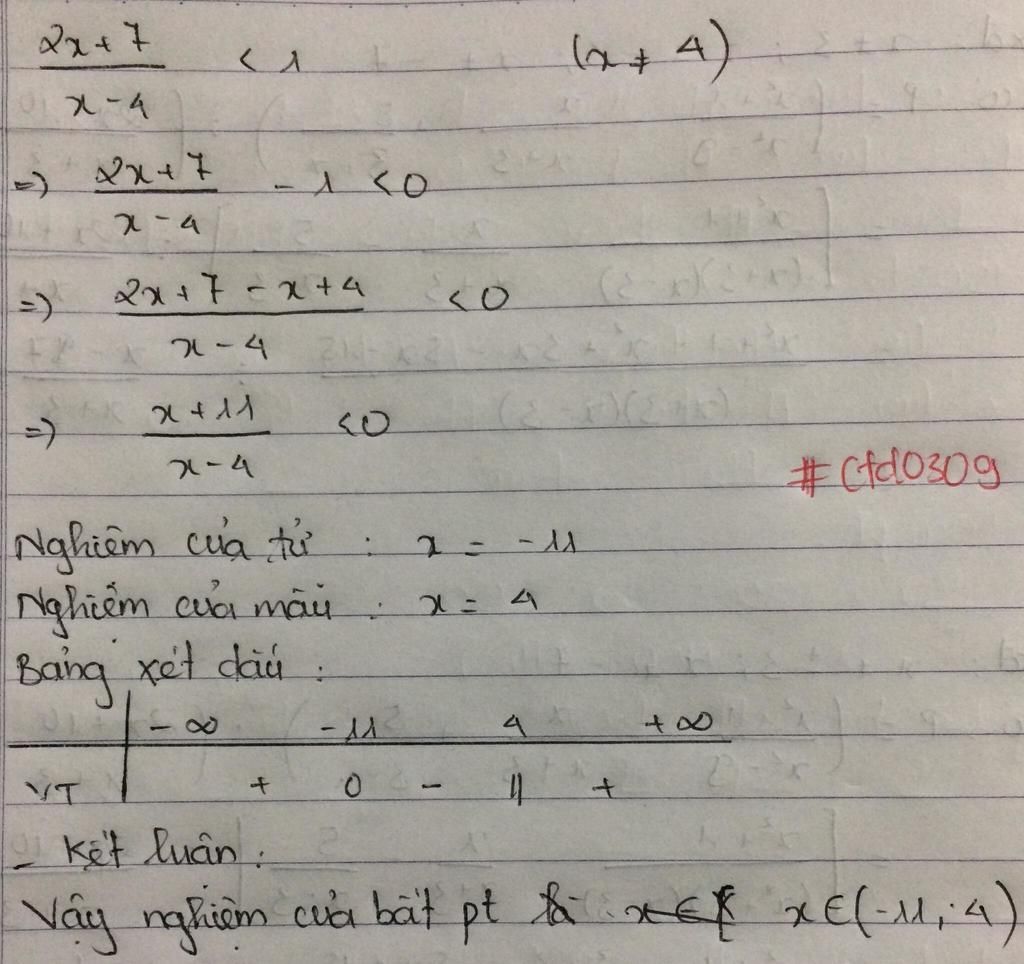 2x+7 / x-4 < 1 (x ≠ 4)
=> 2x+7 / x-4 - 1 < 0
=> 2x+7-x+4 / x-4 < 0
=> x+11 / x-4 < 0
#Ctd0309
Nghiệm của tử : x = -11
Nghiệm của mẫu : x = 4
Bảng xét dấu :
-∞ -11 4 +∞
VT + 0 - || +
- Kết luận :
Vậy nghiệm của bất pt là x∈ x∈(-11; 4)